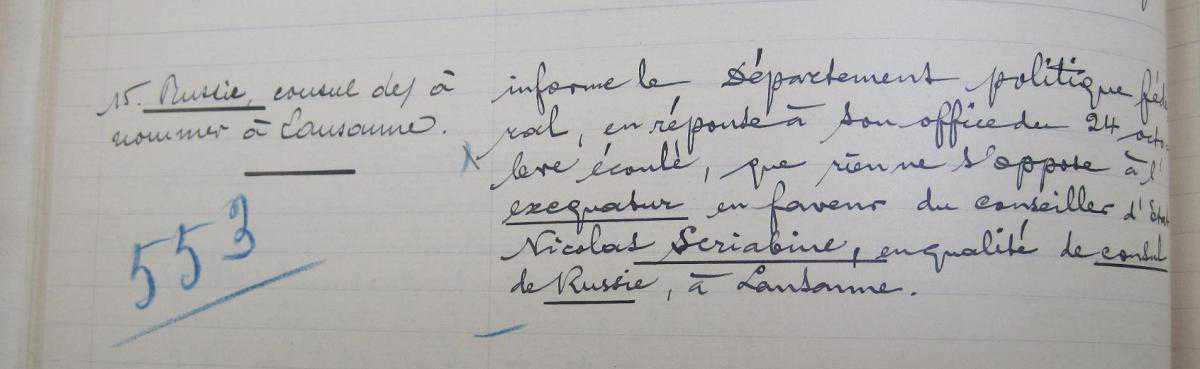 15. Russie, consul de, à
nommer à Lausanne.
553
informe le Département politique fédé
ral, en réponse à son office du 24 octo-
bre écoulé, que rien ne s'oppose à l'
exequatur en faveur du conseiller d'État
Nicolas Scriabine, en qualité de consul
de Russie, à Lausanne.